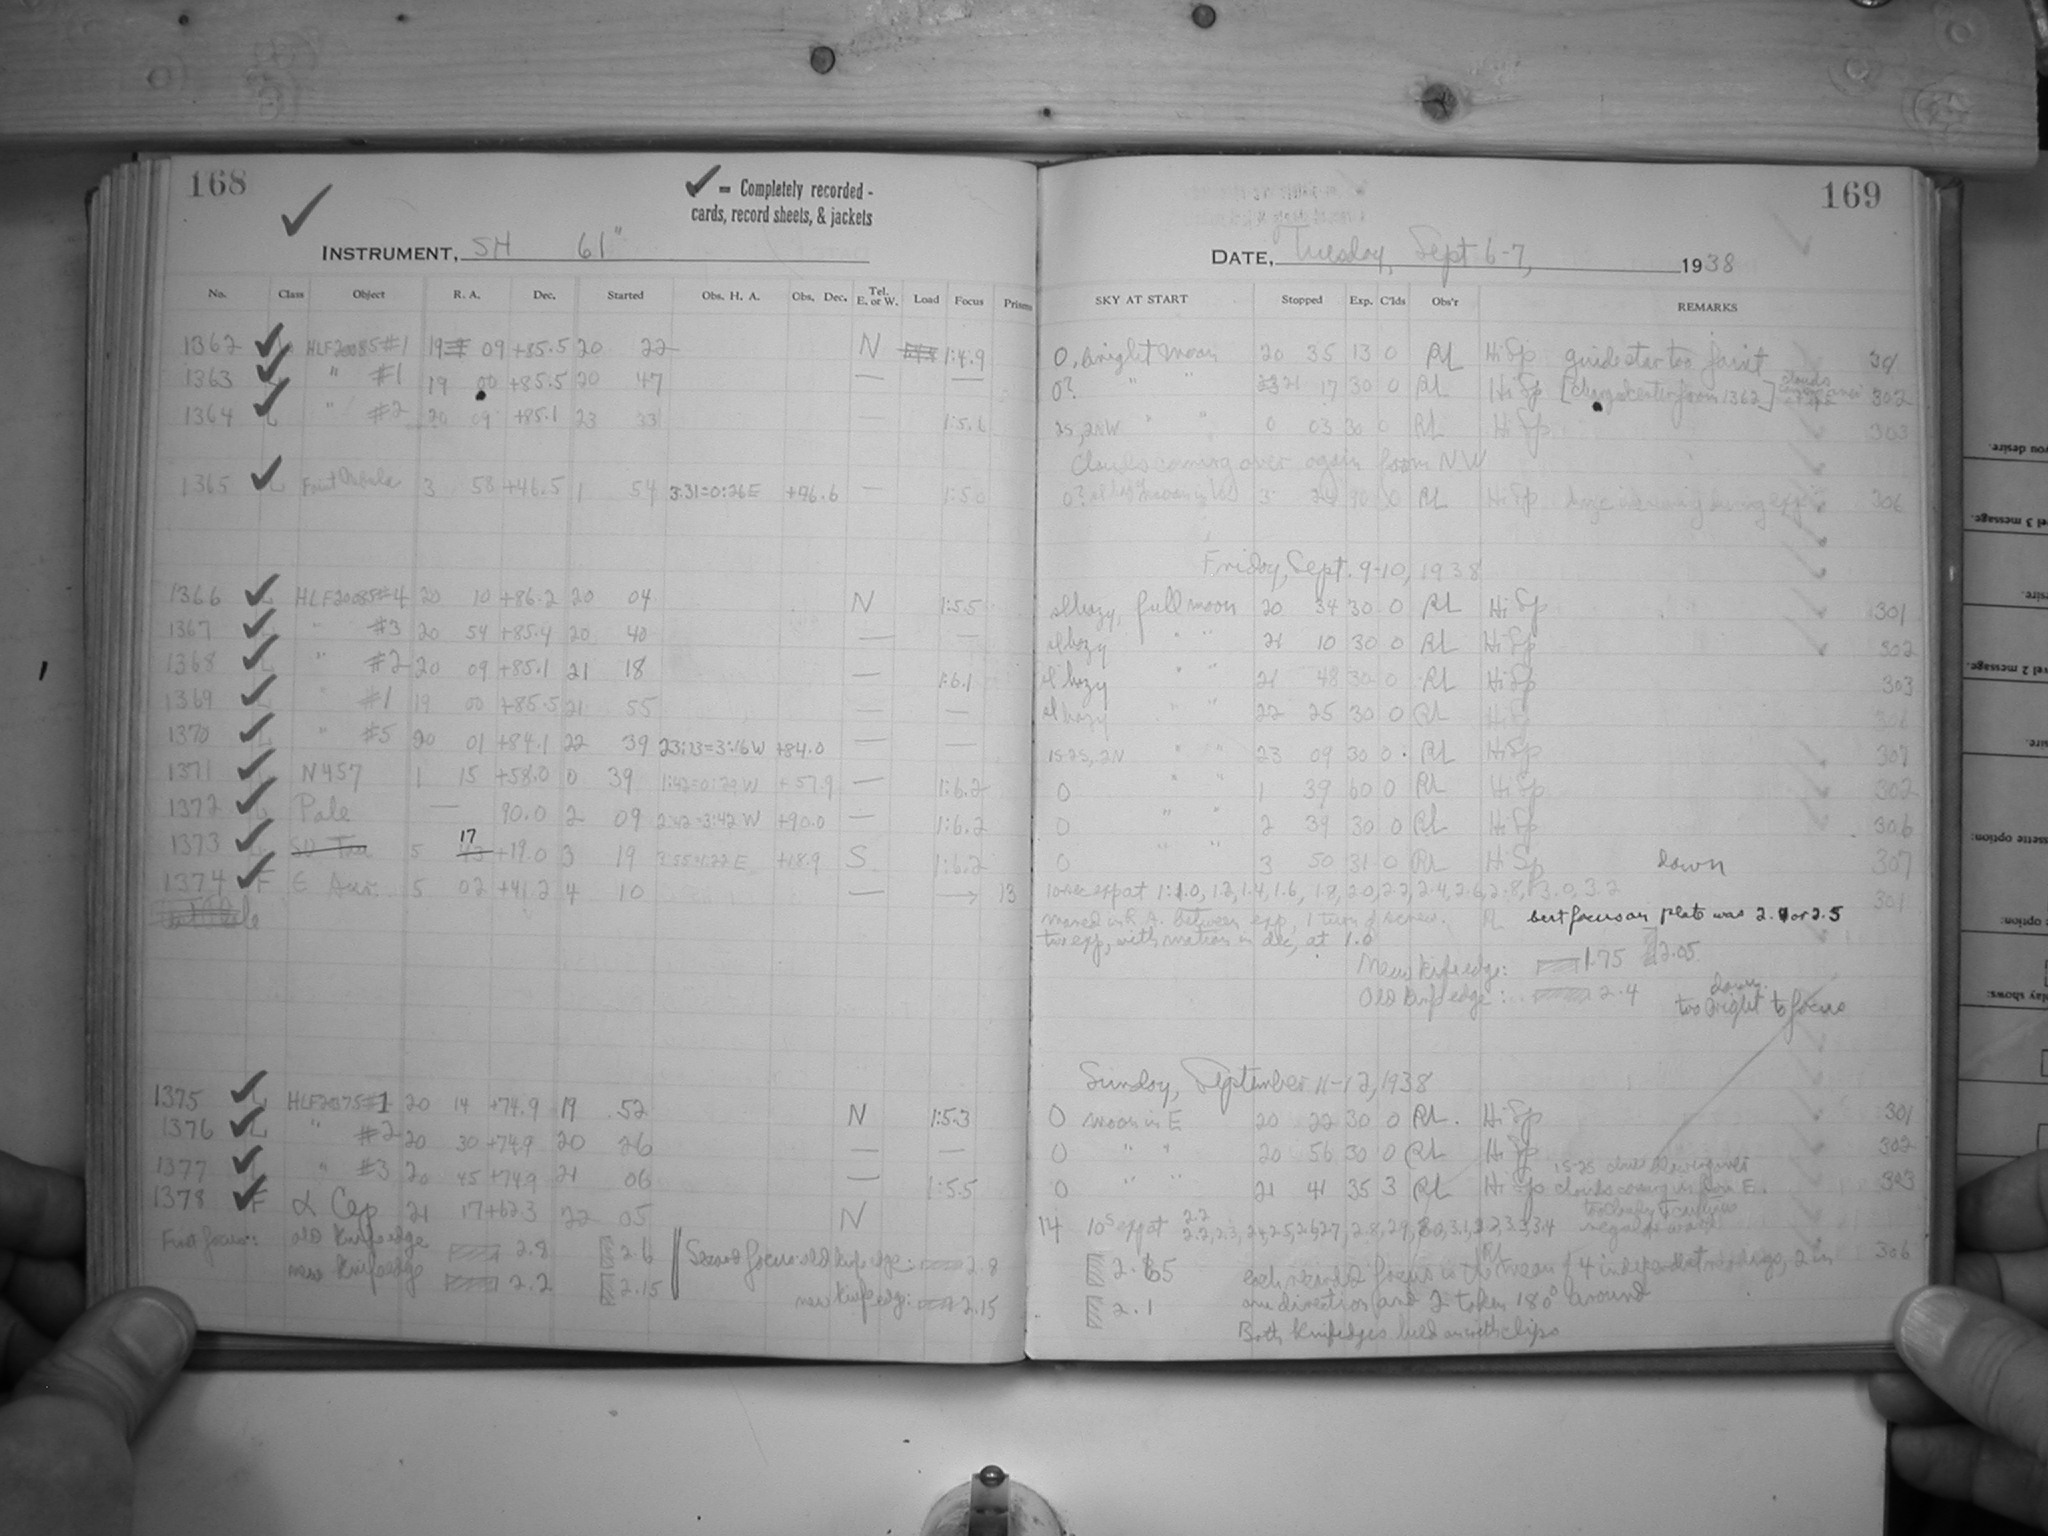 168
✓ = Completely recorded -
cards, record sheets, & jackets
169
INSTRUMENT, SH 61"
DATE, Tuesday, Sept 6-7, 1938
No. Class Object R. A. Dec. Started Obs. H. A. Obs. Dec. Tel. E. or W. Load Focus Prisms SKY AT START Stopped Exp. C'lds Obs'r REMARKS
1362 ✓ L HLF20085#1 19 09 +85.5 20 22 N 1:4.9 0, bright moon 20 35 13 0 RL Hi Sp guide star too faint 301
1363 ✓ L " #1 19 00 +85.5 20 47 — — 0? " " 21 17 30 0 RL Hi Sp from 1362] clouds 302
1364 ✓ L " #2 20 09 +85.1 23 33 — 1:5.1 2S, 2NW " " 0 03 30 0 RL Hi Sp 303
Clouds coming over again from NW
1365 ✓ L Faint Nebula 3 58 +46.5 1 54 3:31=0:26E +46.6 — 1:5.0 0? 3 24 90 0 RL Hi Sp 306
Friday, Sept. 9-10, 1938
1366 ✓ L HLF20085#4 20 10 +86.2 20 04 N 1:5.5 sl hazy, full moon 20 34 30 0 RL Hi Sp 301
1367 ✓ L " #3 20 54 +85.4 20 40 — — sl hazy " " 21 10 30 0 RL Hi Sp 302
1368 ✓ L " #2 20 09 +85.1 21 18 — 1:6.1 sl hazy " " 21 48 30 0 RL Hi Sp 303
1369 ✓ L " #1 19 00 +85.5 21 55 — — sl hazy " " 22 25 30 0 RL Hi Sp
1370 ✓ L " #5 20 01 +84.1 22 39 23:23=3:16W +84.0 — — 1S 2S, 2N " " 23 09 30 0 RL Hi Sp 307
1371 ✓ L N457 1 15 +58.0 0 39 1:42=0:29W +57.9 — 1:6.2 0 " " 1 39 60 0 RL Hi Sp 302
1372 ✓ L Pole — 90.0 2 09 2:42=3:42 W +90.0 — 1:6.2 0 " " 2 39 30 0 RL Hi Sp 306
1373 ✓ L SU Tau 5 17 +19.0 3 19 3:55=1:22 E +18.9 S 1:6.2 0 " " 3 50 31 0 RL Hi Sp dawn 307
1374 ✓ F ε Aur. 5 02 +41.2 4 10 — → 13 10 sec exp at 1:1.0, 1.2, 1.4, 1.6, 1.8, 2.0, 2.2, 2.4, 2.6, 2.8, 3.0, 3.2 301
moved in R.A. between exp, 1 turn of screw. RL best focus on plate was 2.4 or 2.5
two exp, with motion in dec, at 1.0
New knife edge: 1.75 2.05
Old knife edge: 2.4 dawn.
too bright to focus
Sunday, September 11-12, 1938
1375 ✓ L HLF2075#1 20 14 +74.9 19 52 N 1:5.3 0 moon in E 20 22 30 0 RL. Hi Sp 301
1376 ✓ L " #2 20 30 +74.9 20 26 — — 0 " " 20 56 30 0 RL Hi Sp 302
1377 ✓ L " #3 20 45 +74.9 21 06 — 1:5.5 0 " " 21 41 35 3 RL Hi Sp clouds coming in from E. 303
1378 ✓ F α Cep 21 17 +62.3 22 05 N 14 10s exp at 2.2, 2.3, 2.4, 2.5, 2.6, 2.7, 2.8, 2.9, 3.0, 3.1, 3.2, 3.3, 3.4 too cloudy to continue
First focus: old knife edge 2.8 2.6 Second focus: old knife edge: 2.8 2.65 RL 306
new knife edge 2.2 2.15 new knife edge: 2.15 2.1
each recorded focus is the mean of 4 independent readings, 2 in
one direction and 2 taken 180° around
Both knife edges held on with clips